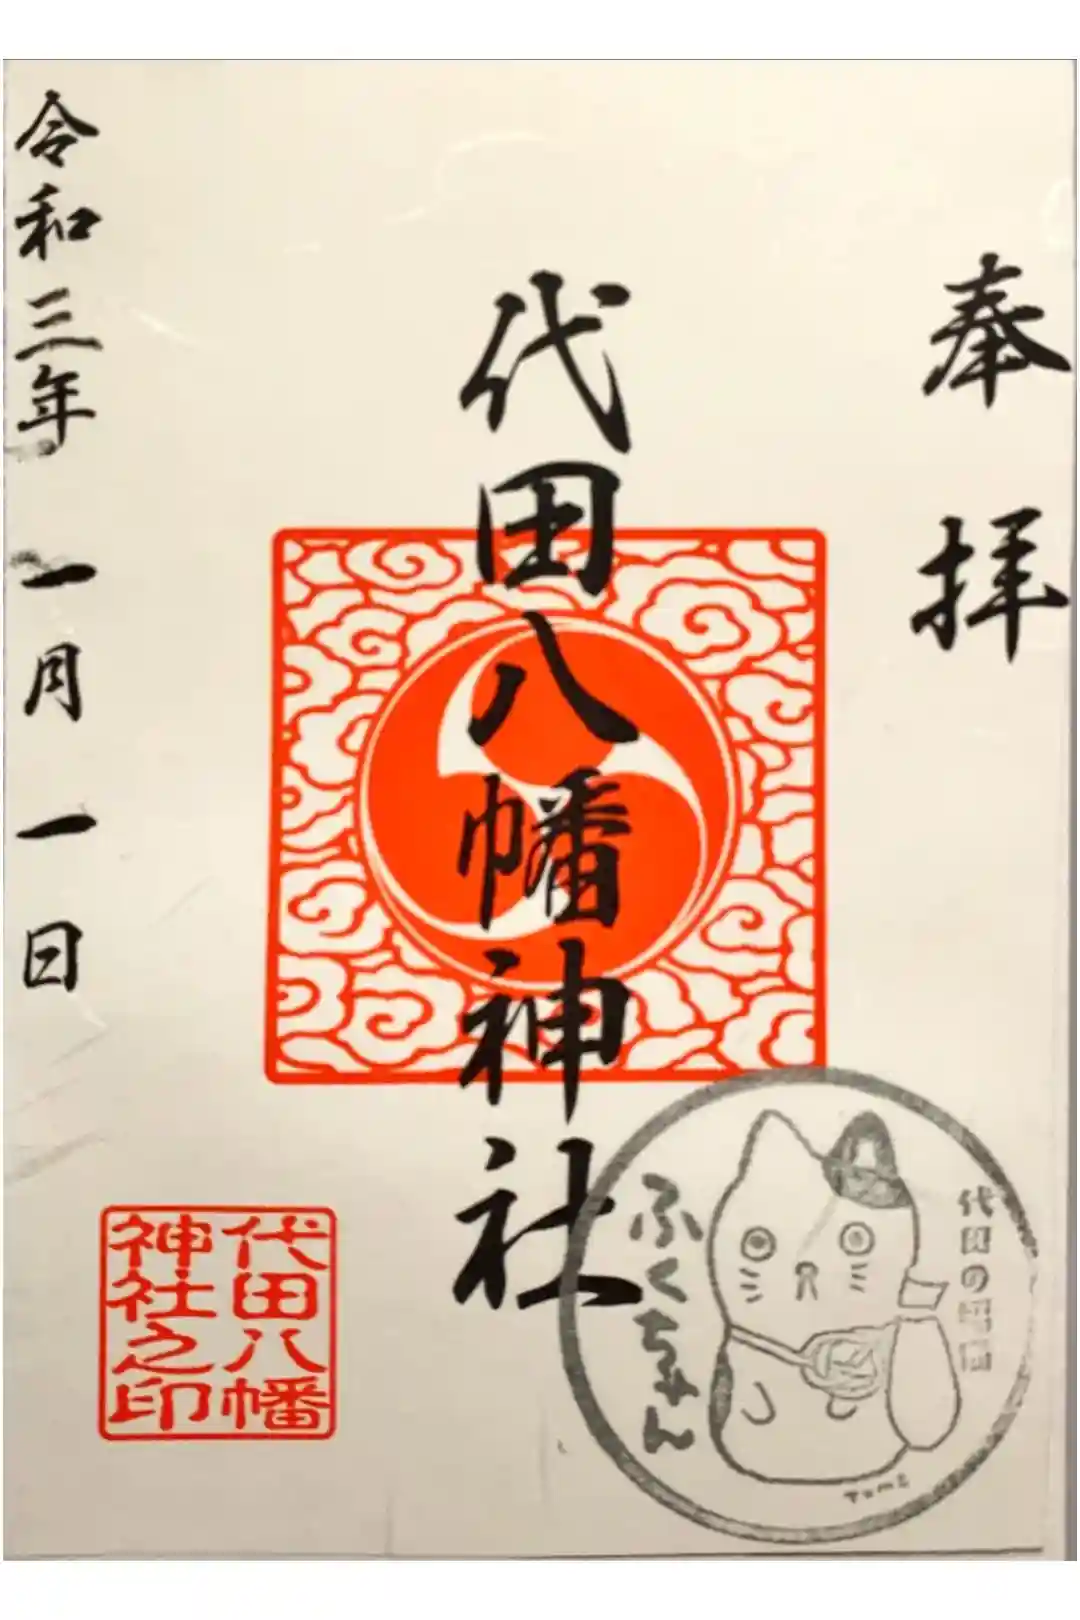 奉拝
代田八幡神社
令和三年 一月 一日
代田八幡
神社之印
代田の
ふくちゃん